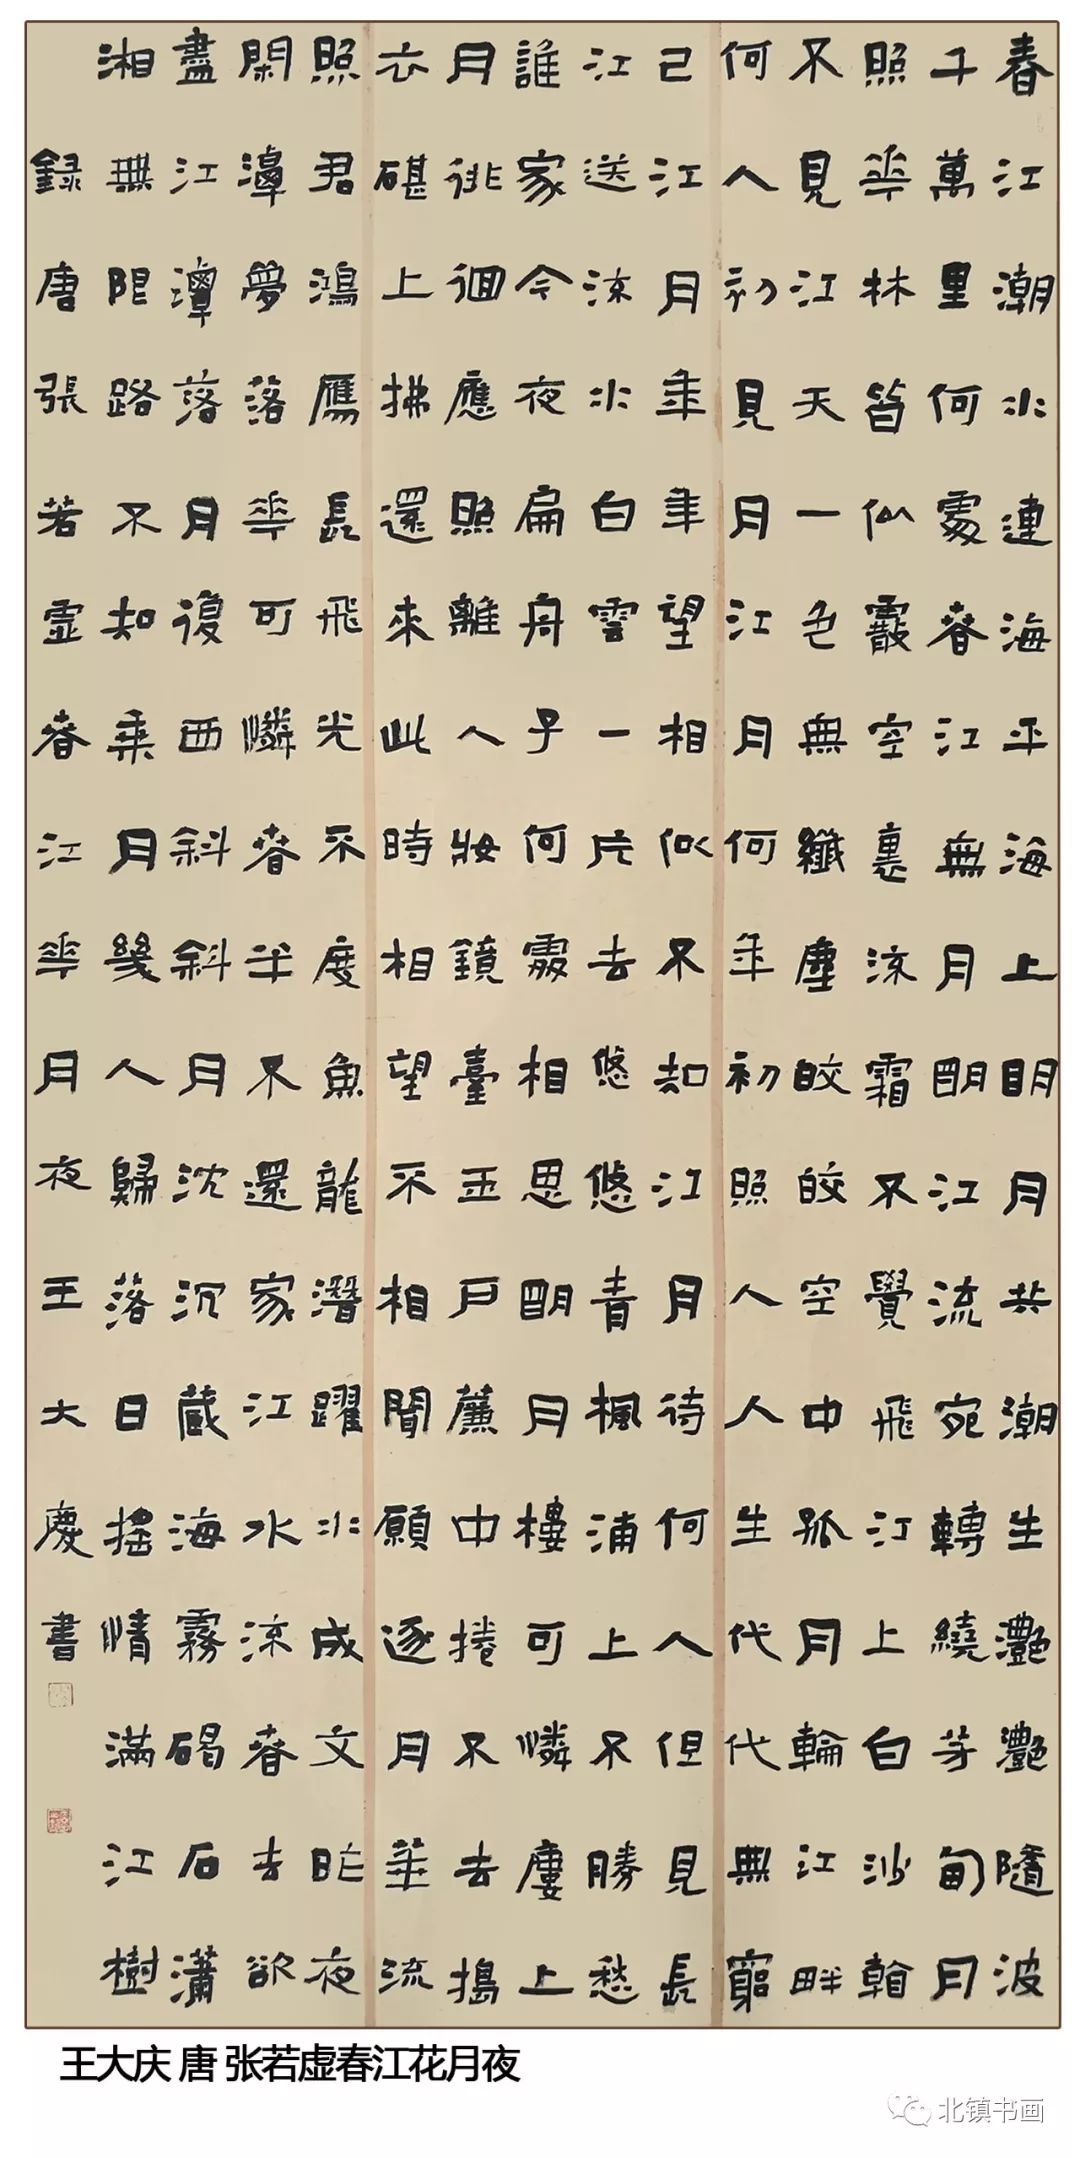 春江潮水連海平海上明月共潮生灧灧隨波
千萬里何處春江無月明江流宛轉繞芳甸月
照華林皆仙霰空裏流霜不覺飛江上白沙翰
不見江天一色無纖塵皎皎空中孤月輪江畔
何人初見月江月何年初照人人生代代無窮
已江月年年望相似不知江月待何人但見長
江送流水白雲一片去悠悠青楓浦上不勝愁
誰家今夜扁舟子何處相思明月樓可憐廔上
月徘徊應照離人妝鏡臺玉戶簾中捲不去搗
衣碪上拂還來此時相望不相聞願逐月華流
照君鴻鴈長飛光不度魚龍潛躍水成文昨夜
閑潭夢落華可憐春半不還家江水流春去欲
盡江潭落月復西斜斜月沈沉藏海霧碣石瀟
湘無限路不知乘月幾人歸落日搖情滿江樹
録唐張若虛春江華月夜王大慶書
王大庆 唐 张若虚春江花月夜
北镇书画